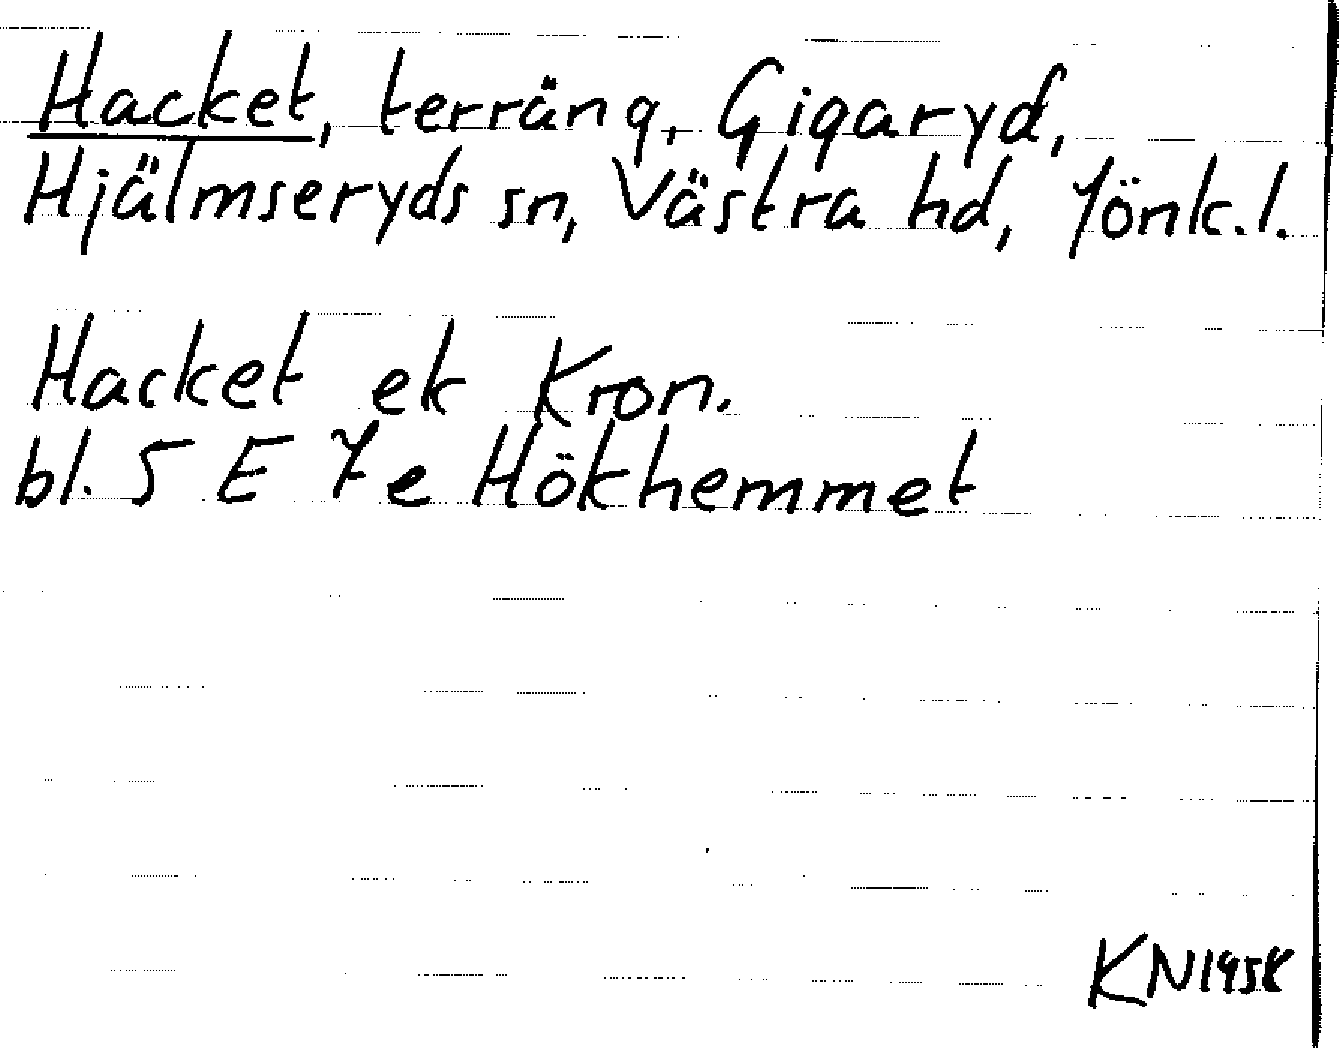 Hacket, terräng, Gigaryd,
Hjälmseryds sn, Västra hd, Jönk.l.
Hacket ek Kron.
bl. 5 E 7e Hökhemmet
KN1958